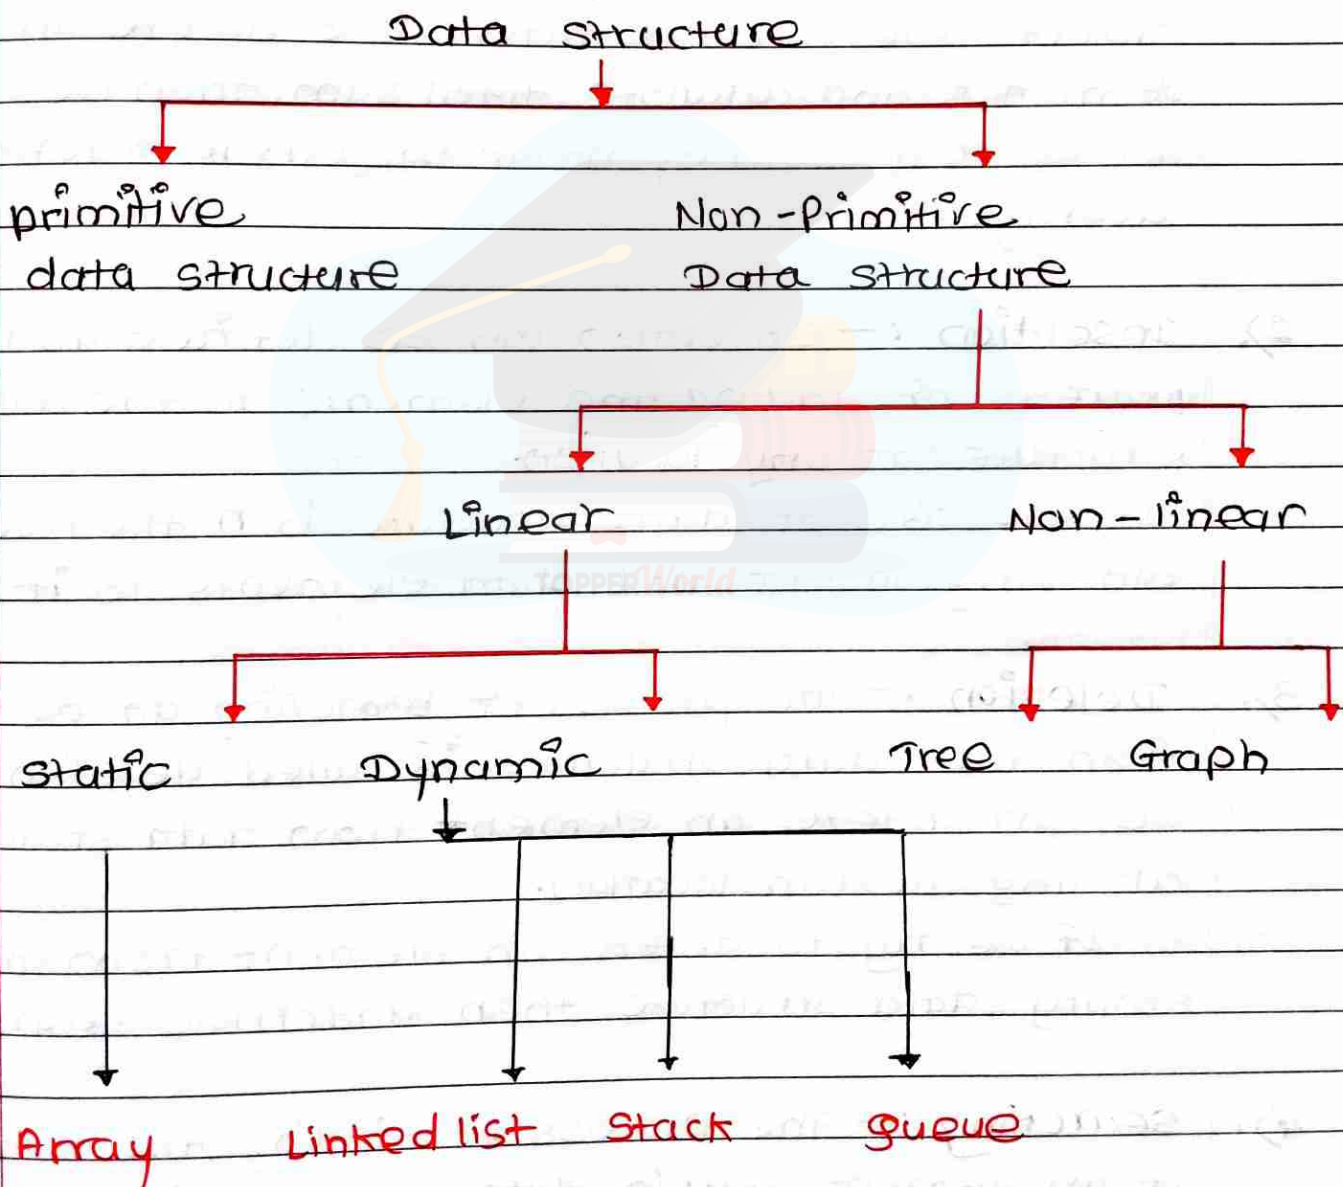 Data structure
primitive Non-Primitive
data structure Data structure
Linear Non-linear
TOPPERWorld
static Dynamic Tree Graph
Array Linked list Stack queue